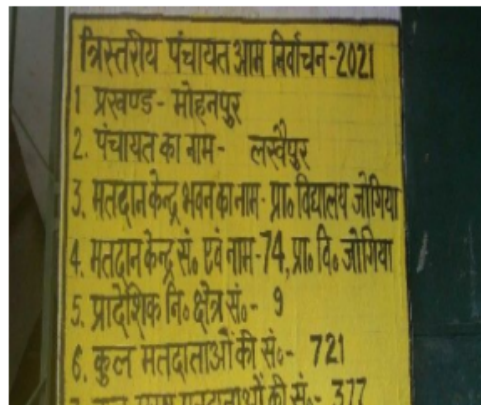 त्रिस्तरीय पंचायत आम निर्वाचन-2021
1 प्रखण्ड- मोहनपुर
2. पंचायत का नाम- लखैपुर
3. मतदान केन्द्र भवन का नाम- प्रा० विद्यालय जोगिया
4. मतदान केन्द्र सं० एवं नाम-74, प्रा० वि० जोगिया
5. प्रादेशिक नि० क्षेत्र सं०- 9
6. कुल मतदाताओं की सं०- 721
7. कुल पुरुष मतदाताओं की सं०- 377